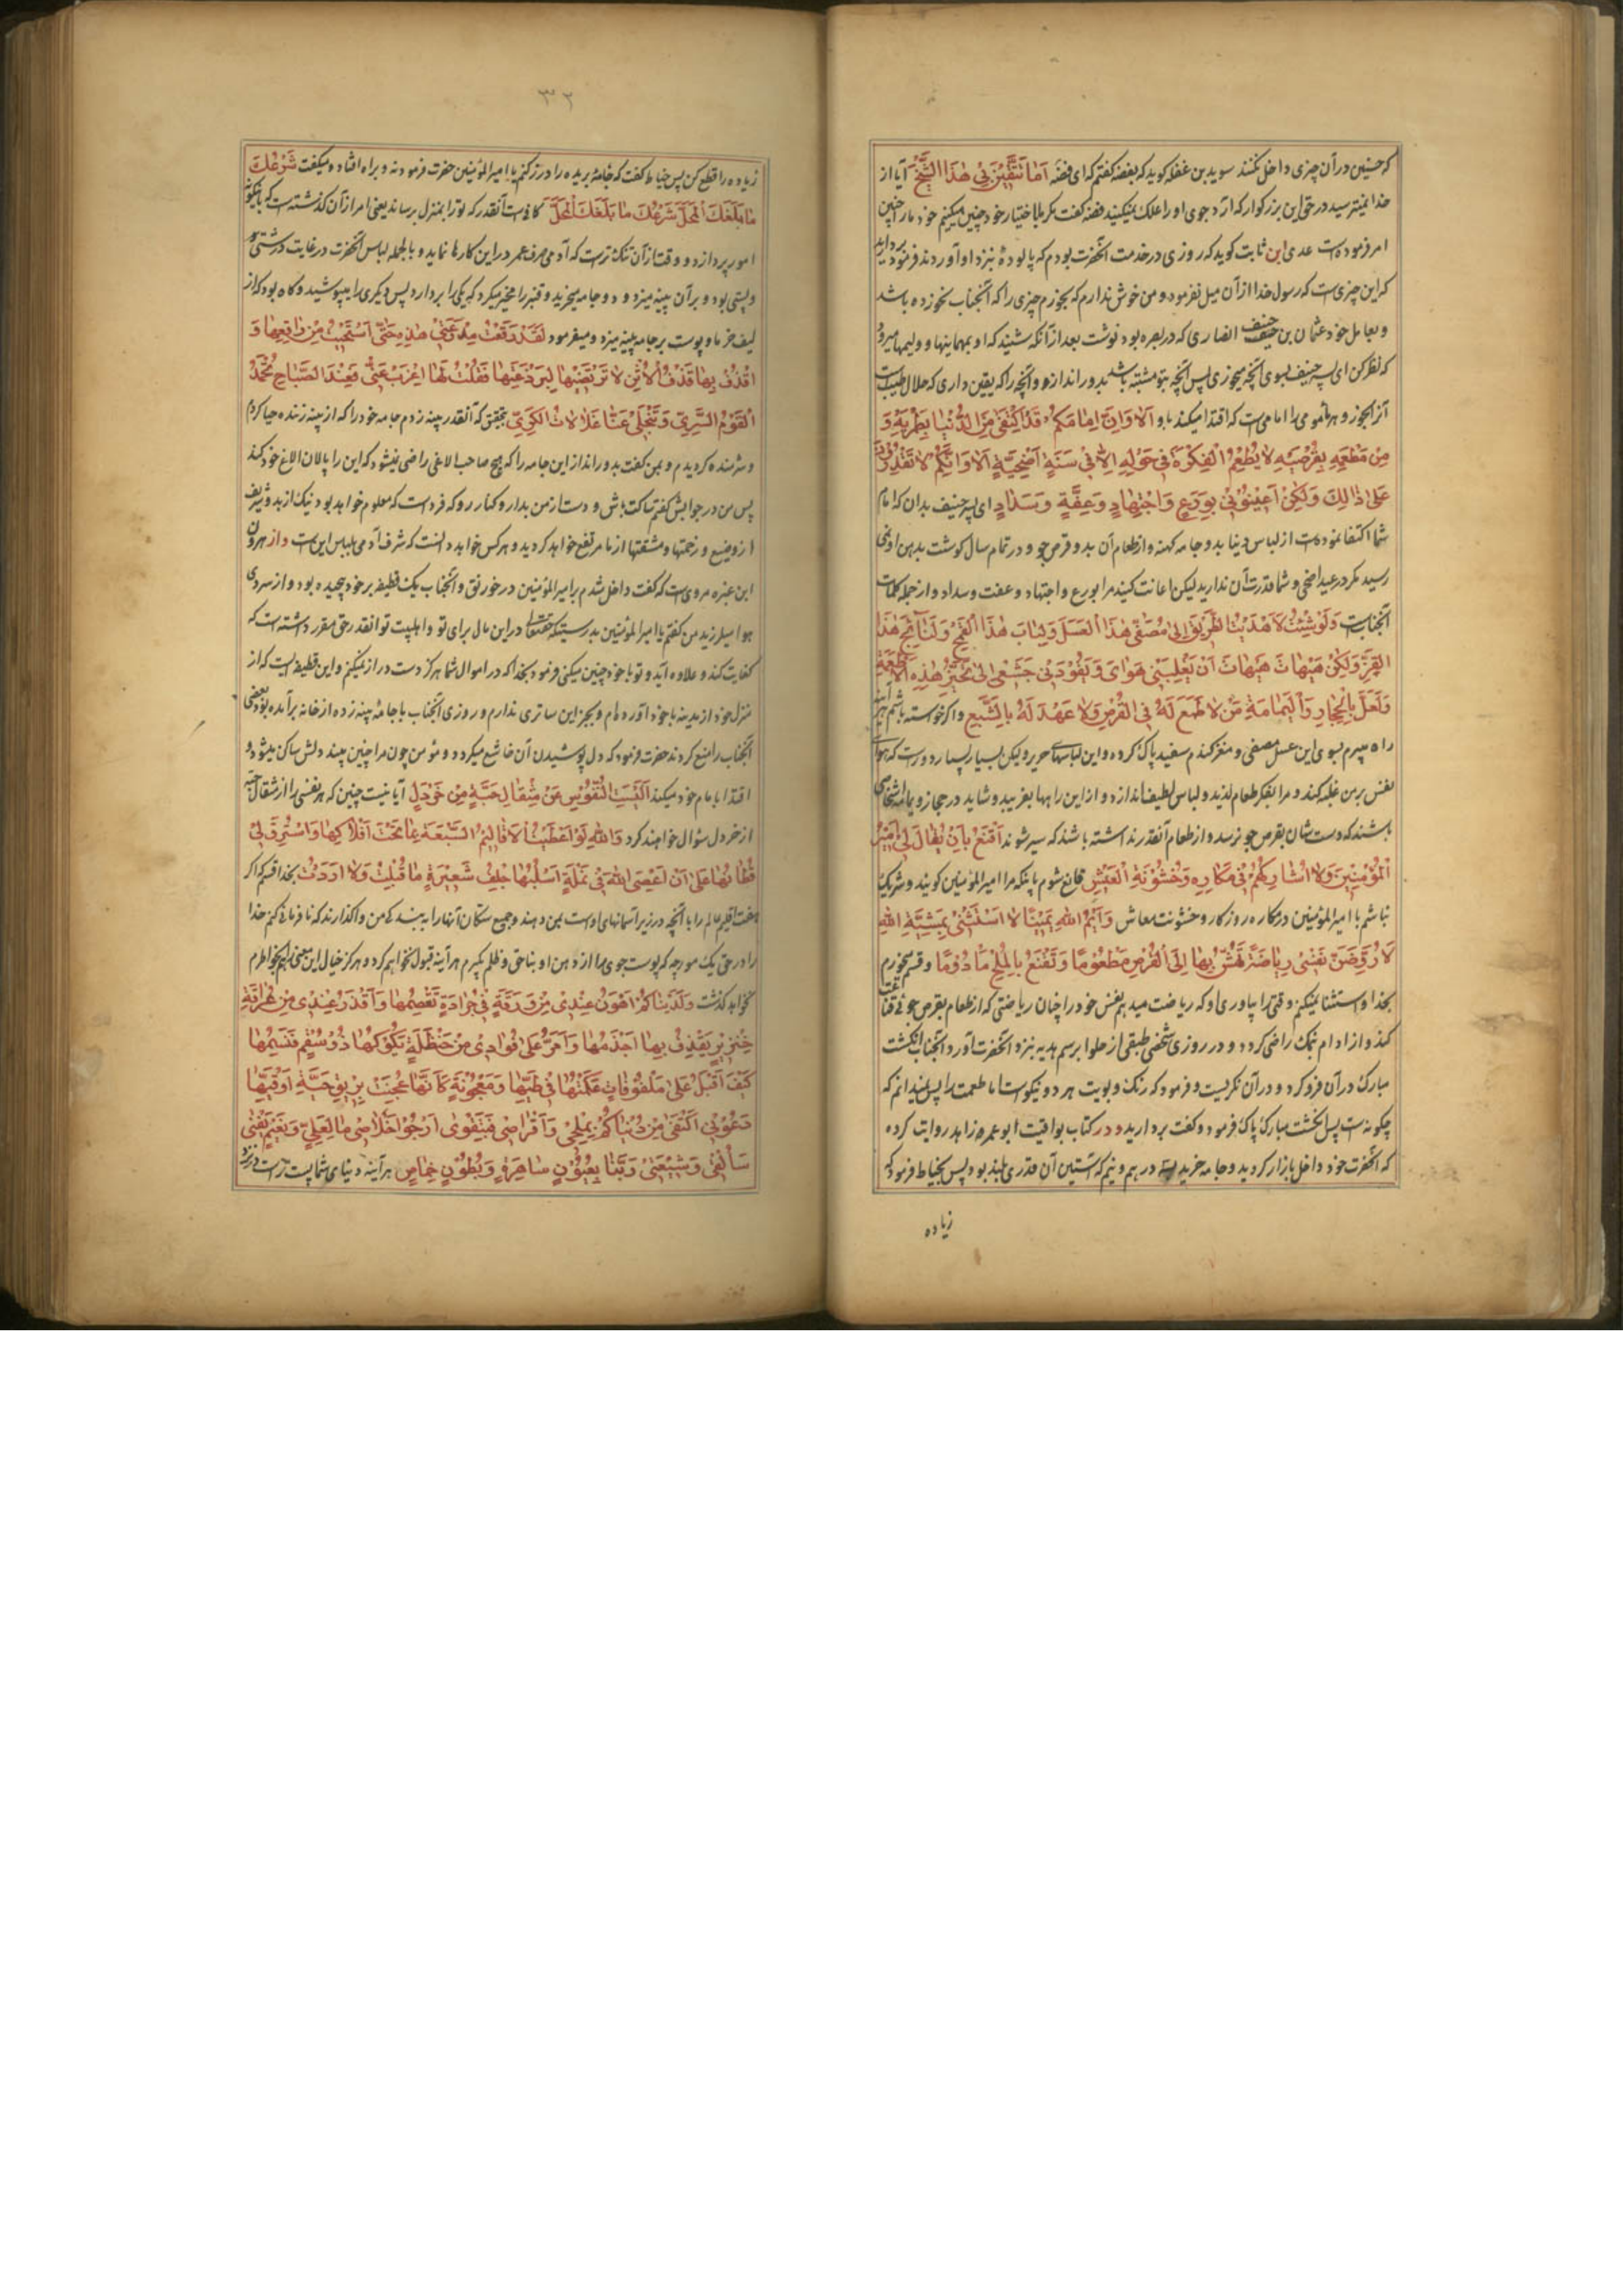 که حسنین در آن چیزی داخل نکنند سوید بن غفله کوید که بفضه کفتم که ای فضه اَما تَتَّقینَ فی هٰذَا الشَّیْخِ آیا از
خدا نمیترسید در حق این بزرکوار که آرد جوی او را علک نمیکنید فضه کفت مکر با اختیار خود چنین میکنیم خود ما را چنین
امر فرموده است عدی ابن ثابت کوید که روزی در خدمت آنحضرت بودم که پالوده بنزد او آوردند فرمود
که این چیزیست که رسول خدا از آن میل نفرمود و من خوش ندارم که بخورم چیزی را که آنجناب نخورده باشد
و بعامل خود عثمان بن حنیف انصاری که در بصره بود نوشت بعد از آنکه شنید که او بمهمانیها و ولیمها میرود
که نظر کن ای پسر حنیف بسوی آنچه میخوری پس آنچه بتو مشتبه باشد بدور انداز و آنچه را که یقین داری که حلال طیب است
آنرا بخور و هر مأموم را امامی است که اقتدا میکند باو اَلا وَاِنَّ اِمامَکُمْ قَدِ اکْتَفی مِنَ الدُّنْیا بِطِمْرَیْهِ وَ
مِنْ مَطْعَمِهِ بِقُرْصَیْهِ لا یَطْعَمُ الْفِلْذَةَ فی حَوْلِهِ اِلّا فی سَنَةِ اُضْحِیَّةٍ اَلا وَاِنَّکُمْ لا تَقْدِرُونَ
عَلی ذٰلِکَ وَلٰکِنْ اَعینُونی بِوَرَعٍ وَاجْتِهادٍ وَعِفَّةٍ وَسَدادٍ ای پسر حنیف بدان که امام
شما اکتفا نموده است از لباس دنیا بدو جامه کهنه و از طعام آن بدو قرص جو و در تمام سال کوشت بدهن او نمی
رسید مکر در عید اضحی و شما قدرت آن ندارید لیکن اعانت کنید مرا بورع و اجتهاد و عفت و سداد و از جمله کلمات
آنجناب است وَلَوْ شِئْتُ لَاهْتَدَیْتُ الطَّریقَ اِلی مُصَفّی هٰذَا الْعَسَلِ وَلُبابِ هٰذَا الْقَمْحِ وَنَسائِجِ هٰذَا
القَزِّ وَلٰکِنْ هَیْهاتَ هَیْهاتَ اَنْ یَغْلِبَنی هَوایَ وَیَقُودَنی جَشَعی اِلی تَخَیُّرِ هٰذِهِ الْاَطْعِمَةِ
وَلَعَلَّ بِالْحِجازِ وَالْیَمامَةِ مَنْ لا طَمَعَ لَهُ فِی الْقُرْصِ وَلا عَهْدَ لَهُ بِالشِّبَعِ و اکر خواسته باشم هر آینه
راه میبرم بسوی این عسل مصفی و مغز کندم سفید پاک کرده و این لباسهای حریر ولیکن بسیار بسیار دور است که هوای
نفس بر من غلبه کند و مرا بفکر طعام لذید و لباس لطیف اندازد و از این راهها بفریبد و شاید در حجاز و یمامه اشخاصی
باشند که دستشان بقرص جو نرسد و از طعام آنقدر نداشته باشند که سیر شوند اَقْنَعُ بِاَنْ یُقالَ لی اَمیرُ
الْمُؤْمِنینَ وَلا اُشارِکُهُمْ فی مَکارِهِ وَخُشُونَةِ الْعَیْشِ قانع شوم باینکه مرا امیرالمؤمنین کویند و شریک
نباشم با امیرالمؤمنین در مکاره روزکار و خشونت معاش وَاَیْمُ اللهِ یَمینًا لا اَسْتَثْنی بِمَشِیَّةِ اللهِ
لَاَرُوضَنَّ نَفْسی رِیاضَةً تَهُشُّ بِها اِلَی الْقُرْصِ مَطْعُومًا وَتَقْنَعُ بِالْمِلْحِ مَأْدُومًا و قسم میخورم
بخدا و استثنا نمیکنم وقتی را بیاوری او که ریاضت میدهم نفس خود را چنان ریاضتی که از طعام بقرص جوئی قناعت
کند و از ادام نمک راضی کردد و در روزی شخصی طبقی از حلوا برسم هدیه بنزد آنحضرت آورد و آنجناب انکشت
مبارک در آن فرو کرد و در آن نکریست و فرمود که رنک و بویت هر دو نیکو است اما طعمت را پس نمیدانم که
چکونه است پس انکشت مبارک پاک فرمود و کفت بردارید و در کتاب یواقیت ابو عمر زاهد روایت کرده
که آنحضرت خود داخل بازار کردید و جامه خرید بسه درهم و نیم که آستین آن قدری بلند بود پس بخیاط فرمود که
زیاده
۳۲
زیاده را قطع کن پس خیاط کفت که جامهٔ بریده را درز کنم یا امیرالمؤمنین حضرت فرمود نه و براه افتاده میکفت شَرْعُکَ
ما بَلَّغَکَ الْمَحَلَّ شَرْعُکَ ما بَلَّغَکَ الْمَحَلَّ کافی است آنقدر که تو را بمنزل برساند یعنی امر از آن کذشته است که
امور پردازد و وقت از آن تنکتر است که آدمی صرف عمر در این کارها نماید و بالجمله لباس آنحضرت در غایت درشتی
و پستی بود و بر آن پینه میزد و دو جامه میخرید و قنبر را مخیر میکرد که یکی را بردارد پس دیکری را میپوشید و کاه بود که از
لیف خرما و پوست بر جامه پینه میزد و میفرمود لَقَدْ رَقَعْتُ مِدْرَعَتی هٰذِهِ حَتّی اسْتَحْیَیْتُ مِنْ راقِعِها وَ
اقْذِفْ بِها قَذْفَ الْاُتُنِ لا تَرْتَضیها لِبَرْذَعَتِها فَقُلْتُ لَهَا اغْرُبْ عَنّی فَعِنْدَ الصَّباحِ یَحْمَدُ
الْقَوْمُ السُّری وَتَنْجَلی عَنّا غَلالاتُ الْکَری بتحقیق که آنقدر پینه زدم جامه خود را که از پینه زننده حیا کردم
و شرمنده کردیدم و بمن کفت بدور انداز این جامه را که هیچ صاحب الاغی راضی نمیشود که این را پالان الاغ خود کند
پس من در جوابش کفتم ساکت باش و دست از من بدار و کنار رو که فردا است که معلوم خواهد بود نیک از بد و شریف
از وضیع و زحمتها و مشقتها از ما مرتفع خواهد کردید و هر کس خواهد دانست که شرف آدمی بلباس این است و از هرون
ابن عنتره مرویست که کفت داخل شدم بر امیرالمؤمنین در خورنق و آنجناب یک قطیفه بر خود پیچیده بود و از سردی
هوا میلرزید من کفتم یا امیرالمؤمنین بدرستیکه حقتعالی در این مال برای تو و اهلبیت تو آنقدر حق مقرر داشته است که
کفایت کند و علاوه آید و تو با خود چنین میکنی فرمود بخدا که در اموال شما هرکز دست دراز نمیکنم و این قطیفه است که از
منزل خود از مدینه با خود آورده‌ام و بجز این ساتری ندارم و روزی آنجناب با جامهٔ پینه زده از خانه برآمده بود بعضی
آنجناب را منع کردند حضرت فرمود که دل بپوشیدن آن خاشع میکردد و مؤمن چون مرا چنین بیند دلش ساکن میشود و
اقتدا بامام خود میکند اَلَیْسَتِ النُّفُوسُ عَنْ مِثْقالِ حَبَّةٍ مِنْ خَرْدَلٍ آیا نیست چنین که هر نفسی را از مثقال حبه
از خردل سؤال خواهند کرد وَاللهِ لَوْ اُعْطیتُ الْاَقالیمَ السَّبْعَةَ بِما تَحْتَ اَفْلاکِها وَاسْتُرِقَّ لی
قُطّانُها عَلی اَنْ اَعْصِیَ اللهَ فی نَمْلَةٍ اَسْلُبُها جِلْفَ شَعیرَةٍ ما قَبِلْتُ وَلا اَرَدْتُ بخدا قسم که اکر
هفت اقلیم عالم را با آنچه در زیر آسمانهای اوست بمن دهند و جمیع سکان آنها را به بندکی من واکذارند که نافرمانی کنم خدا
را در حق یک مورچه که پوست جوی را از دهن او بناحق و ظلم بکیرم هر آینه قبول نخواهم کرد و هرکز خیال این معنی بخاطرم
نخواهد کذشت وَلَدُنْیاکُمْ اَهْوَنُ عِنْدی مِنْ وَرَقَةٍ فی جَرادَةٍ تَقْضِمُها وَاَقْذَرُ عِنْدی مِنْ عُراقَةِ
خِنْزیرٍ یَقْذِفُ بِها اَجْذَمُها وَاَمَرُّ عَلی فُؤادی مِنْ حَنْظَلَةٍ یَلُوکُها ذُو سُقْمٍ فَیَبْشِمُها
کَیْفَ اَقْبَلُ عَلی مَلْفُوفاتٍ عَکَمْتُها فی طَیِّها وَمَعْجُونَةٍ کَاَنَّها عُجِنَتْ بِریقِ حَیَّةٍ اَوْ قَیْئِها
دَعُونی اَکْتَفی مِنْ دُنْیاکُمْ بِمِلْحی وَاَقْراصی فَبِتَقْوی اَرْجُو خَلاصی ما لِعَلِیٍّ وَنَعیمٍ یَفْنی
سَاَلْقی وَشیعَتی رَبَّنا بِعُیُونٍ ساهِرَةٍ وَبُطُونٍ خِماصٍ هر آینه دنیای شما پست‌تر است در نزد